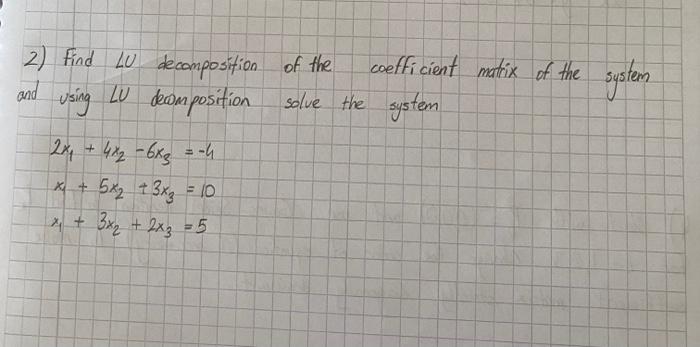 2) Find LU decomposition of the coefficient matrix of the system
and using LU decomposition solve the system
2x₁ + 4x₂ - 6x₃ = -4
x₁ + 5x₂ + 3x₃ = 10
x₁ + 3x₂ + 2x₃ = 5